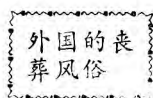 外国的丧
葬风俗